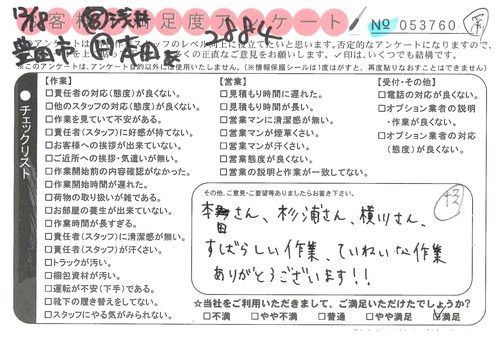 12/18 営浅井 2884
客様満足度アンケート
豊田市 作 本田〆
№053760
スタッフのレベル向上に役立てたいと思います。否定的なアンケートになりますが、
多くの正直なご意見をお願いします。✓印は、いくつでも結構です。
※このアンケートは、アンケート目的以外に使用いたしません。(※情報保護シールは1度はがすと、再度貼りなおすことはできません)
チェックリスト
【作業】
□責任者の対応(態度)が良くない。
□他のスタッフの対応(態度)が良くない。
□作業を見ていて不安がある。
□責任者(スタッフ)に好感が持てない。
□お客様への挨拶が出来ていない。
□ご近所への挨拶・気遣いが無い。
□作業開始前の内容確認がなかった。
□作業開始時間が遅れた。
□荷物の取り扱いが雑である。
□お部屋の養生が出来ていない。
□作業時間が長すぎる。
□責任者(スタッフ)に清潔感が無い。
□責任者(スタッフ)が汗くさい。
□トラックが汚い。
□梱包資材が汚い。
□運転が不安(下手)である。
□靴下の履き替えをしてない。
□スタッフにやる気がみられない。
【営業】
□見積もり時間に遅れた。
□見積もり時間が長い。
□営業マンに清潔感が無い。
□営業マンが煙草くさい。
□営業マンが汗くさい。
□営業態度が良くない。
□営業の説明と作業が一致してない。
【受付・その他】
□電話の対応が良くない。
□オプション業者の説明
・作業が良くない。
□オプション業者の対応
(態度)が良くない。
その他、ご意見・ご要望等ありましたらお書き下さい。
本田さん、杉浦さん、横川さん、
すばらしい作業、ていねいな作業
ありがとうございます!!
☆当社をご利用いただきまして、ご満足いただけたでしょうか?
□不満 □やや不満 □普通 □やや満足 ☑満足